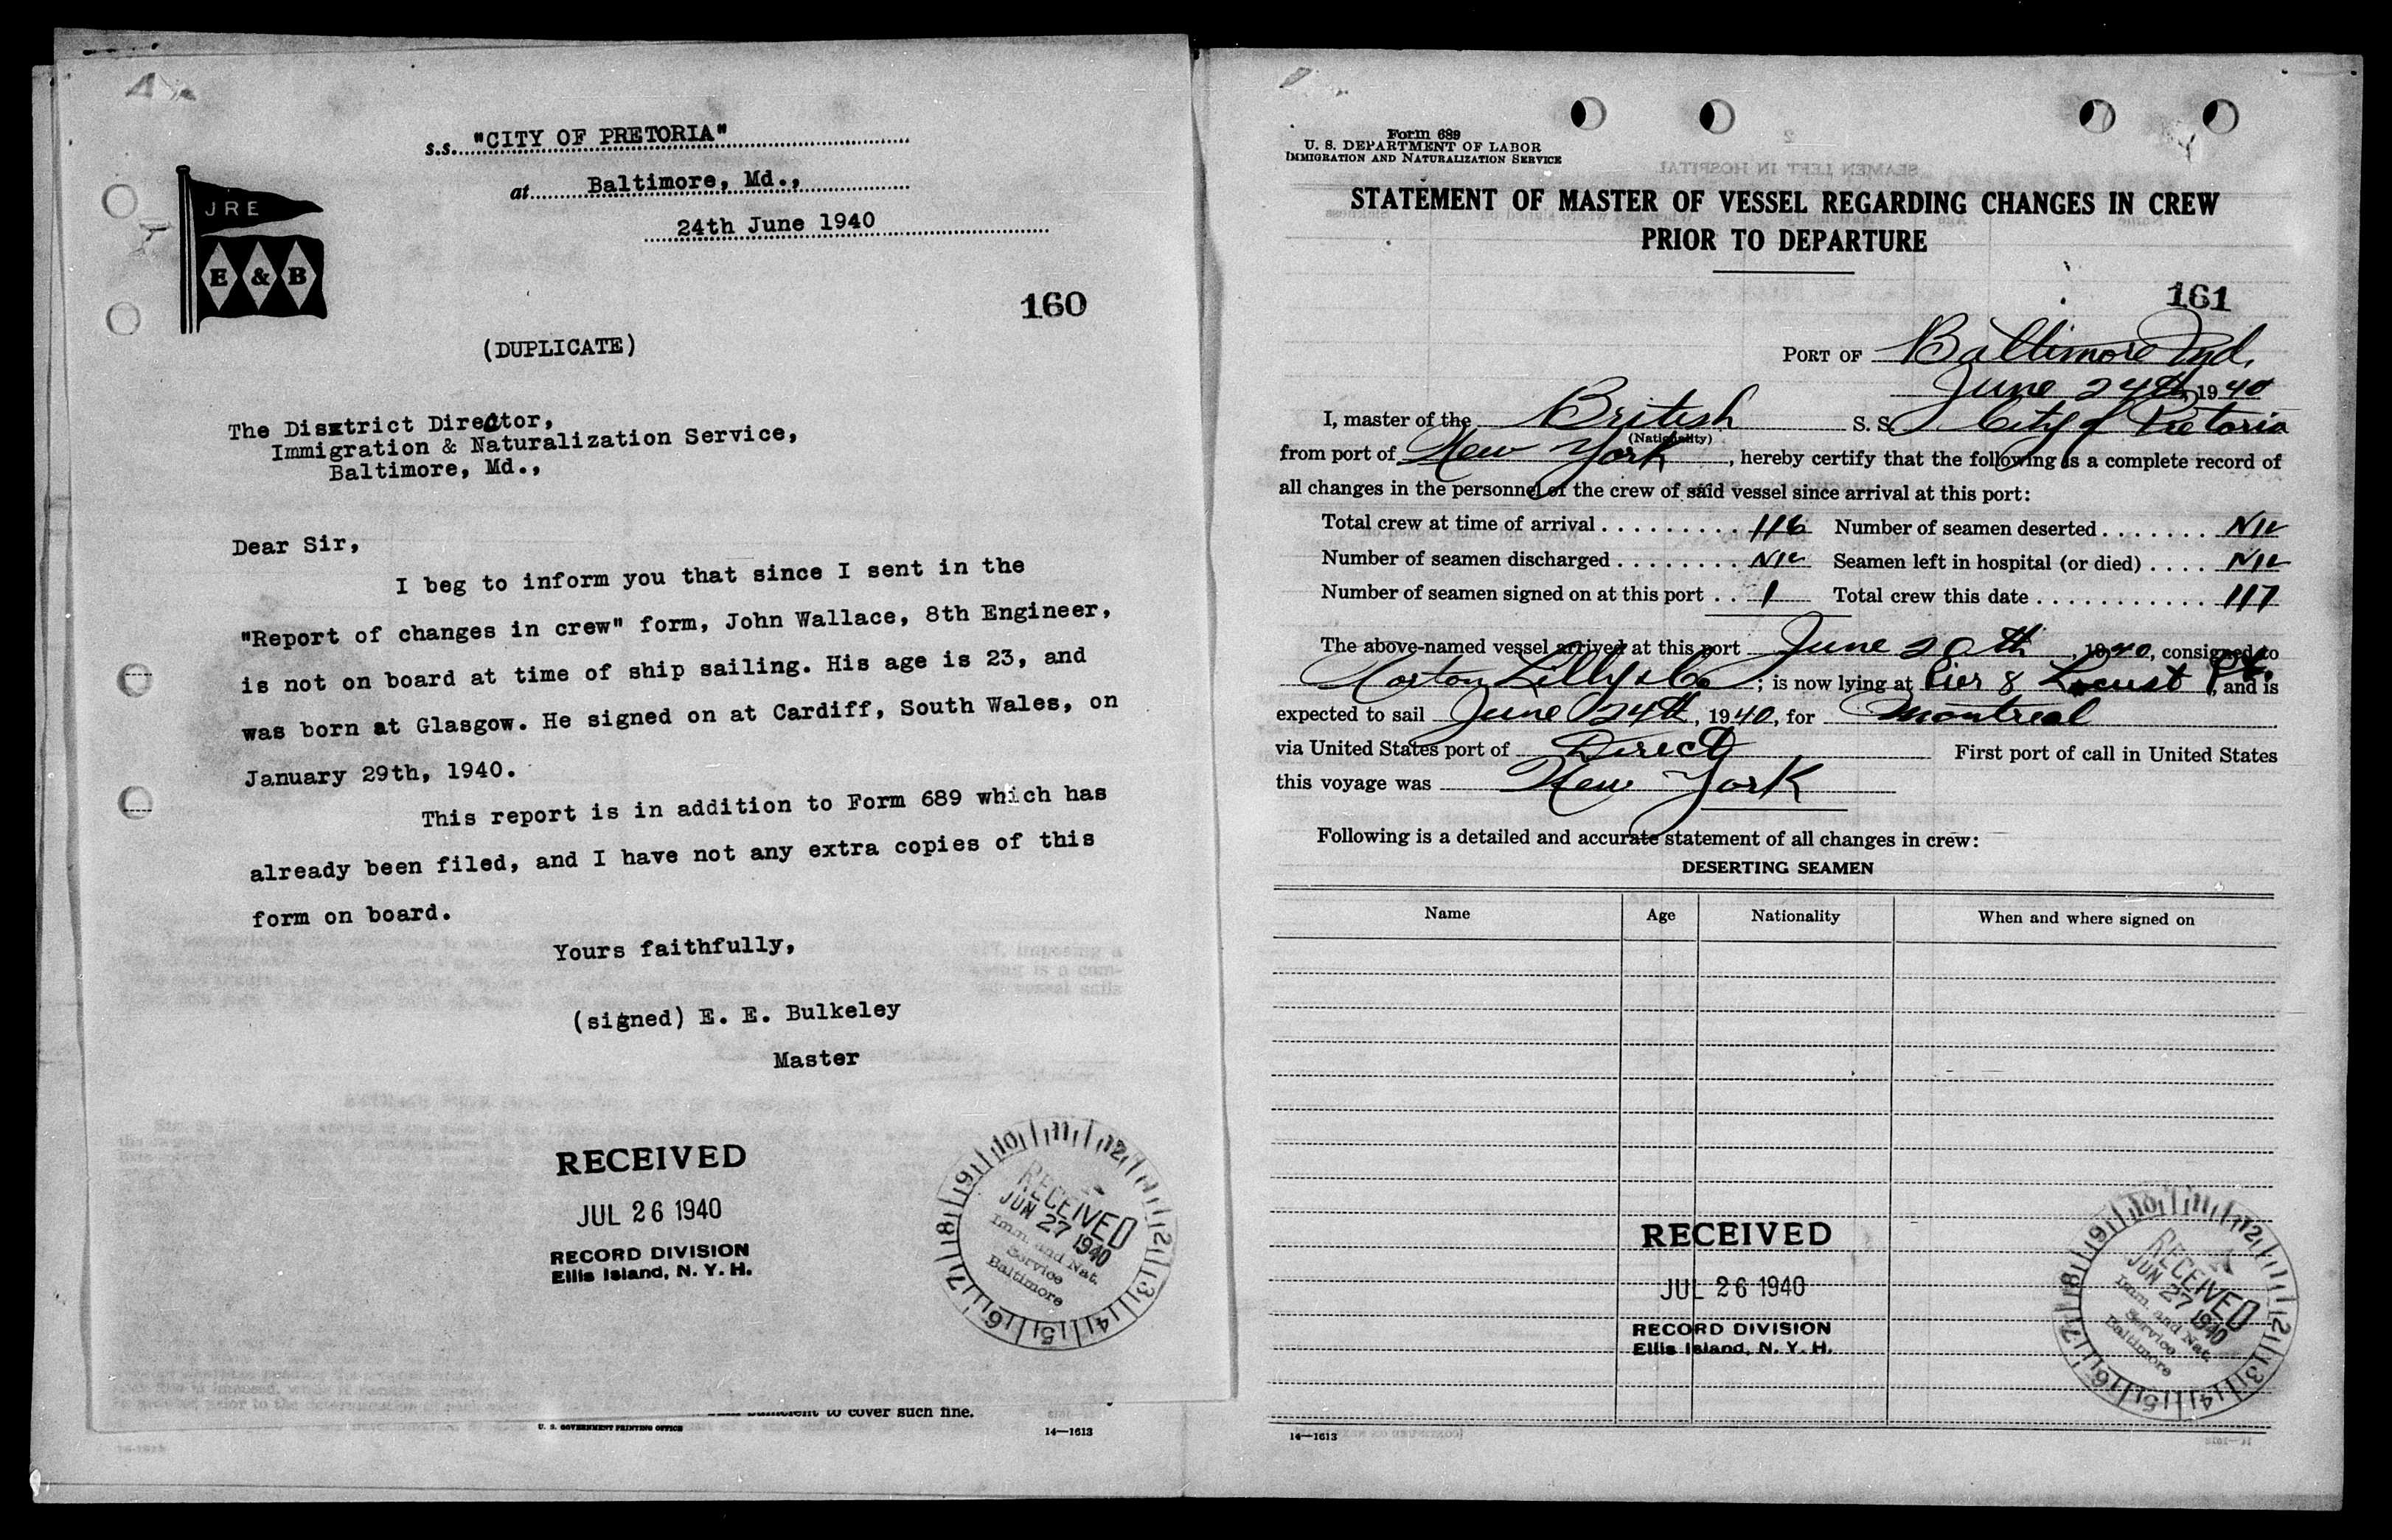 s.s. "CITY OF PRETORIA"
at Baltimore, Md.,
24th June 1940
JRE
E & B
160
(DUPLICATE)
The Disxtrict Director,
Immigration & Naturalization Service,
Baltimore, Md.,
Dear Sir,
I beg to inform you that since I sent in the
"Report of changes in crew" form, John Wallace, 8th Engineer,
is not on board at time of ship sailing. His age is 23, and
was born at Glasgow. He signed on at Cardiff, South Wales, on
January 29th, 1940.
This report is in addition to Form 689 which has
already been filed, and I have not any extra copies of this
form on board.
Yours faithfully,
(signed) E. E. Bulkeley
Master
RECEIVED
JUL 26 1940
RECORD DIVISION
Ellis Island, N. Y. H.
10 11 12 1 2 3 4 5 6 7 8 9
RECEIVED
JUN 27 1940
Imm. and Nat.
Service
Baltimore
to cover such fine.
U. S. GOVERNMENT PRINTING OFFICE
14—1613
Form 689
U. S. DEPARTMENT OF LABOR
IMMIGRATION AND NATURALIZATION SERVICE
STATEMENT OF MASTER OF VESSEL REGARDING CHANGES IN CREW
PRIOR TO DEPARTURE
161
PORT OF Baltimore Md.
June 24th, 1940
I, master of the British S. S. City of Pretoria
(Nationality)
from port of New York, hereby certify that the following is a complete record of
all changes in the personnel of the crew of said vessel since arrival at this port:
Total crew at time of arrival . . . . . . . . . 116 Number of seamen deserted . . . . . . . NIL
Number of seamen discharged . . . . . . . . NIL Seamen left in hospital (or died) . . . . NIL
Number of seamen signed on at this port . . 1 Total crew this date . . . . . . . . . . . 117
The above-named vessel arrived at this port June 20th, 1940, consigned to
Norton Lilly & Co; is now lying at Pier 8 Locust Pt., and is
expected to sail June 24th, 1940, for Montreal
via United States port of Direct First port of call in United States
this voyage was New York
Following is a detailed and accurate statement of all changes in crew:
DESERTING SEAMEN
Name Age Nationality When and where signed on
RECEIVED
JUL 26 1940
RECORD DIVISION
Ellis Island, N. Y. H.
10 11 12 1 2 3 4 5 6 7 8 9
RECEIVED
JUN 27 1940
Imm. and Nat.
Service
Baltimore
14—1613